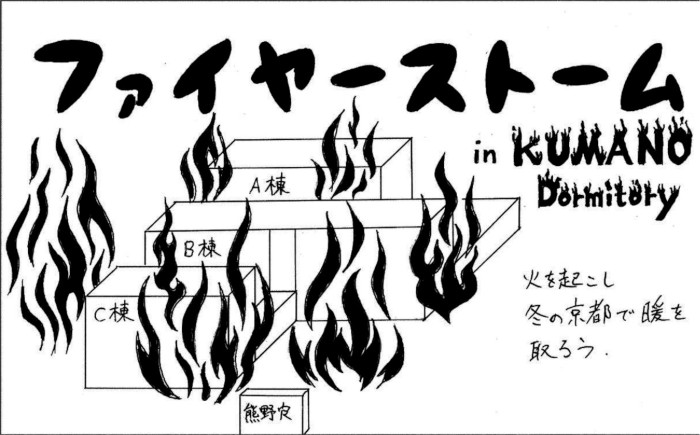 ファイヤーストーム
in KUMANO
Dormitory
A棟
B棟
C棟
熊野寮
火を起こし
冬の京都で暖を
取ろう.